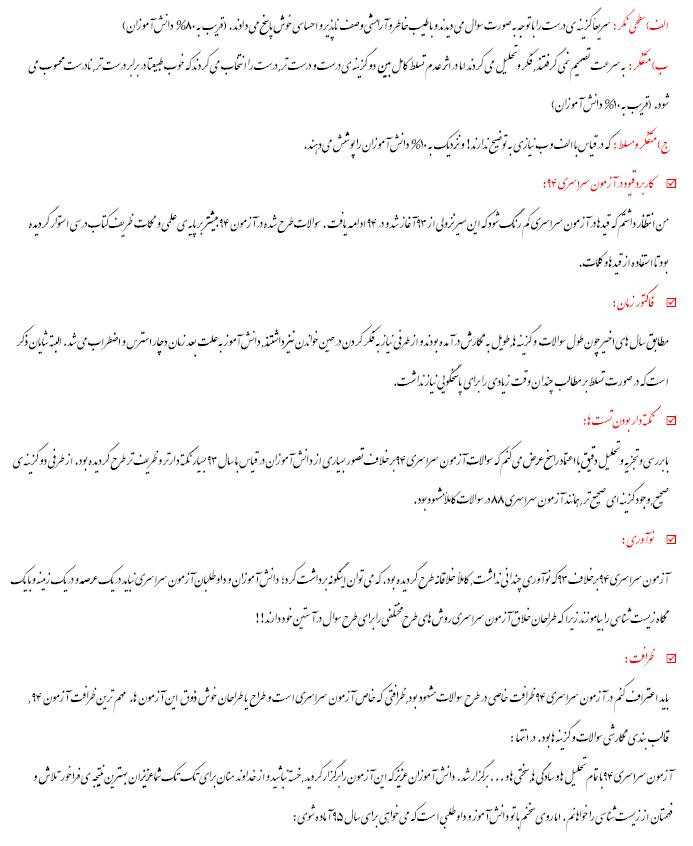 الف) سطحی نگر : سریعاً گزینه ی درست را با توجه به صورت سوال می دیدند و با طیب خاطر و آرامشی وصف ناپذیر و احساسی خوش پاسخ می دادند. (قریب به ۸۰% دانش آموزان)
ب) متفکر : به سرعت تصمیم نمی گرفتند، فکر و تحلیل می کردند اما در اثر عدم تسلط کامل بین دو گزینه ی درست و درست تر، درست را انتخاب می کردند که خوب طبیعتا در برابر درست تر، نادرست محسوب می
شود. (قریب به ۱۰% دانش آموزان)
ج) متفکر و مسلط : که در قیاس با الف و ب نیازی به توضیح ندارند! و نزدیک به ۱۰% دانش آموزان را پوشش می دهند.
کاربرد قیود در آزمون سراسری ۹۴:
من انتظار داشتم که قیدها در آزمون سراسری کم رنگ شود که این سیر نزولی از ۹۳ آغاز شد و در ۹۴ ادامه یافت. سوالات طرح شده در آزمون ۹۴ بیشتر بر پایه ی علمی و نکات ظریف کتاب درسی استوار گردیده
بود تا استفاده از قیدها و کلمات.
فاکتور زمان :
مطابق سال های اخیر چون طول سوالات و گزینه ها، طویل به نگارش در آمده بودند و از طرفی نیاز به فکر کردن در حین خواندن نیز داشتند، دانش آموز به علت بعد زمان دچار استرس و اضطراب می شد. البته شایان ذکر
است که در صورت تسلط بر مطالب چندان وقت زیادی را برای پاسخگویی نیاز نداشت.
نکته دار بودن تست ها:
با بررسی و تجزیه و تحلیل دقیق با اعتماد راسخ عرض می کنم که سوالات آزمون سراسری ۹۴ بر خلاف تصور بسیاری از دانش آموزان در قیاس با سال ۹۳ بسیار نکته دارتر و ظریف تر طرح گردیده بود. از طرفی دو گزینه ی
صحیح، وجود گزینه ای صحیح تر، همانند آزمون سراسری ۸۸ در سوالات کاملاً مشهود بود.
نوآوری :
آزمون سراسری ۹۴ بر خلاف ۹۳ که نوآوری چندانی نداشت، کاملاً خلاقانه طرح گردیده بود. که می توان اینگونه برداشت کرد؛ دانش آموزان و داوطلبان آزمون سراسری نباید در یک عرصه و در یک زمینه و با یک
نگاه زیست شناسی را بیاموزند زیرا که طراحان خلاق آزمون سراسری روش های طرح مختلفی را برای طرح سوال در آستین خود دارند!!
ظرافت :
باید اعتراف کنم در آزمون سراسری ۹۴ ظرافت خاصی در طرح سوالات مشهود بود، ظرافتی که خاص آزمون سراسری است و طراح یا طراحان خوش ذوق این آزمون ها. مهم ترین ظرافت آزمون ۹۴،
قالب بندی نگارشی سوالات و گزینه ها بود. در انتها :
آزمون سراسری ۹۴ با تمام تحلیل ها و سادگی ها، سختی ها و ... برگزار شد. دانش آموزان عزیز که این آزمون را برگزار کردید، خسته نباشید و از خداوند منان برای تک تک شما عزیزان بهترین نتیجه ی فراخور تلاش و
فهمتان از زیست شناسی را خواهانم. اما روی سخنم با تو دانش آموز و داوطلبی است که می خواهی برای سال ۹۵ آماده شوی :